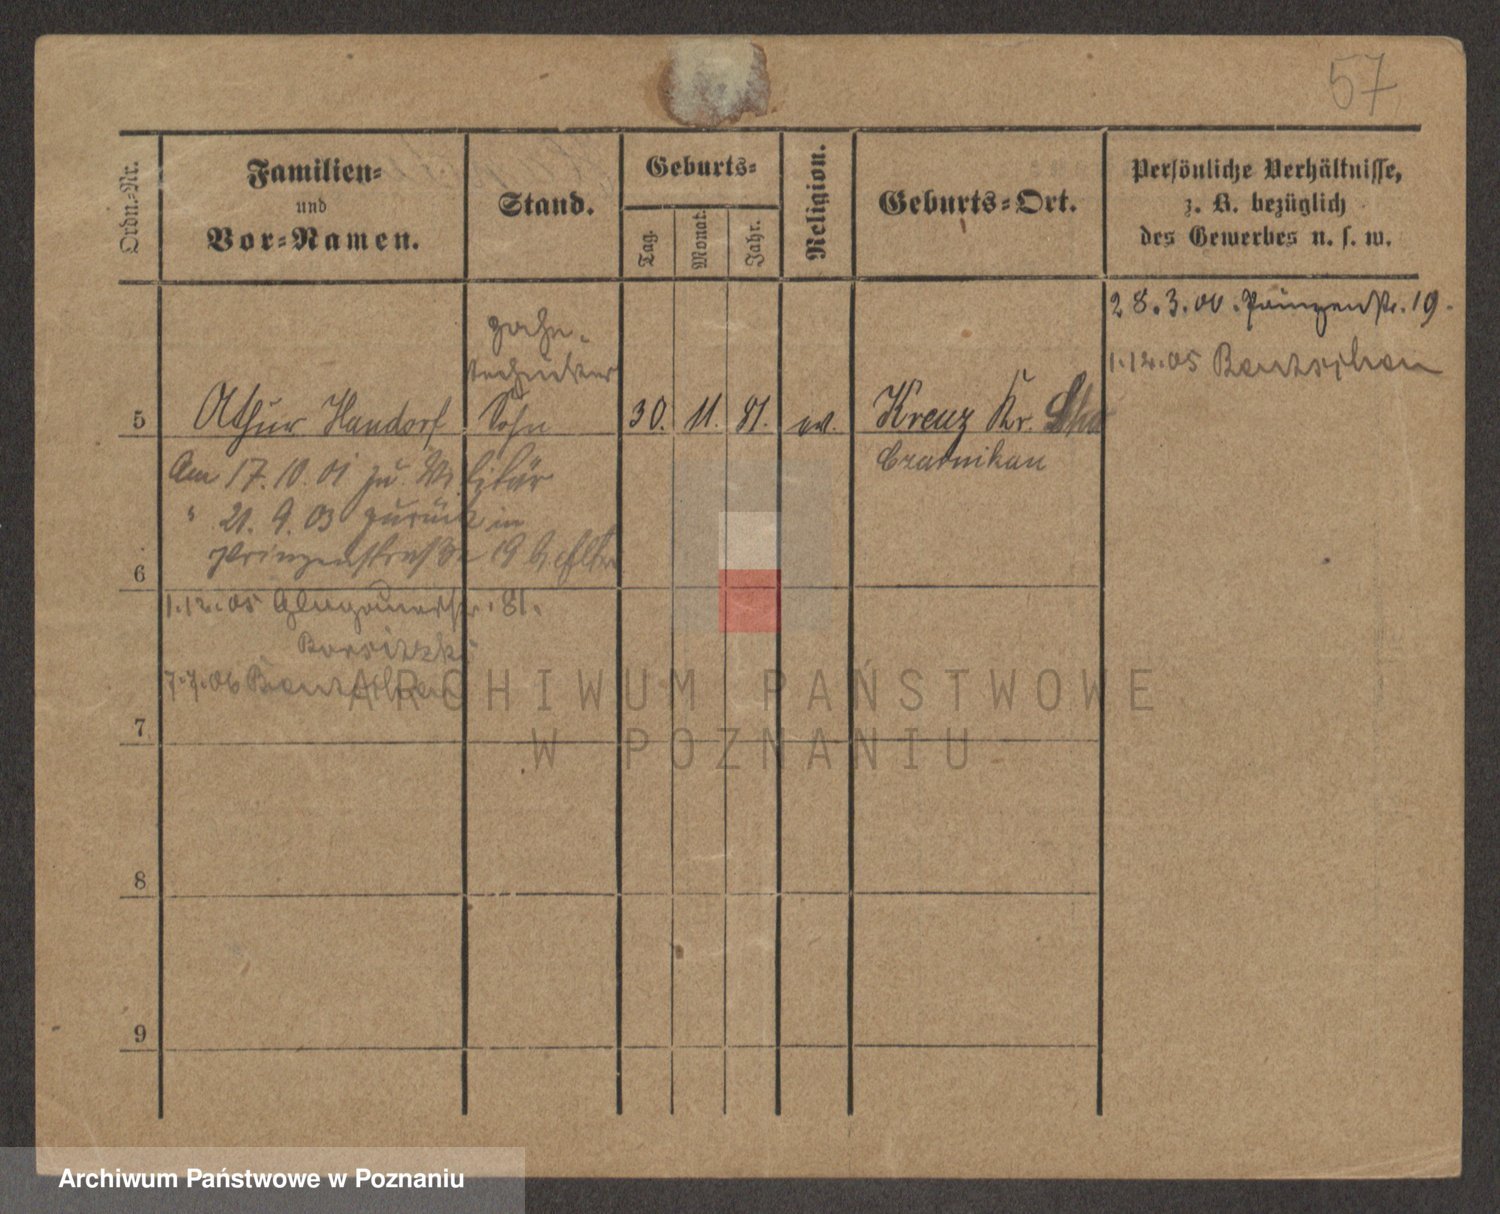 57
Ordn.-Nr.
Familien-
und
Vor-Namen.
Stand.
Geburts-
Tag.
Monat.
Jahr.
Religion.
Geburts-Ort.
Persönliche Verhältnisse,
z. B. bezüglich
des Gewerbes u. s. w.
28.3.00. Prinzenstr. 19.
1.12.05 Bentschen
zahn-
techniker
5 Athur Handorf Sohn 30. 11. 81. ev. Kreuz Kr.
Czarnikau
Am 17.10.01 zu Militär
" 21. 9. 03 zurück in
Prinzenstraße 19
6
1.12.05 Glogauerstr. 81.
7.7.06 Bentschen
7
8
9
ARCHIWUM PAŃSTWOWE
W POZNANIU
Archiwum Państwowe w Poznaniu